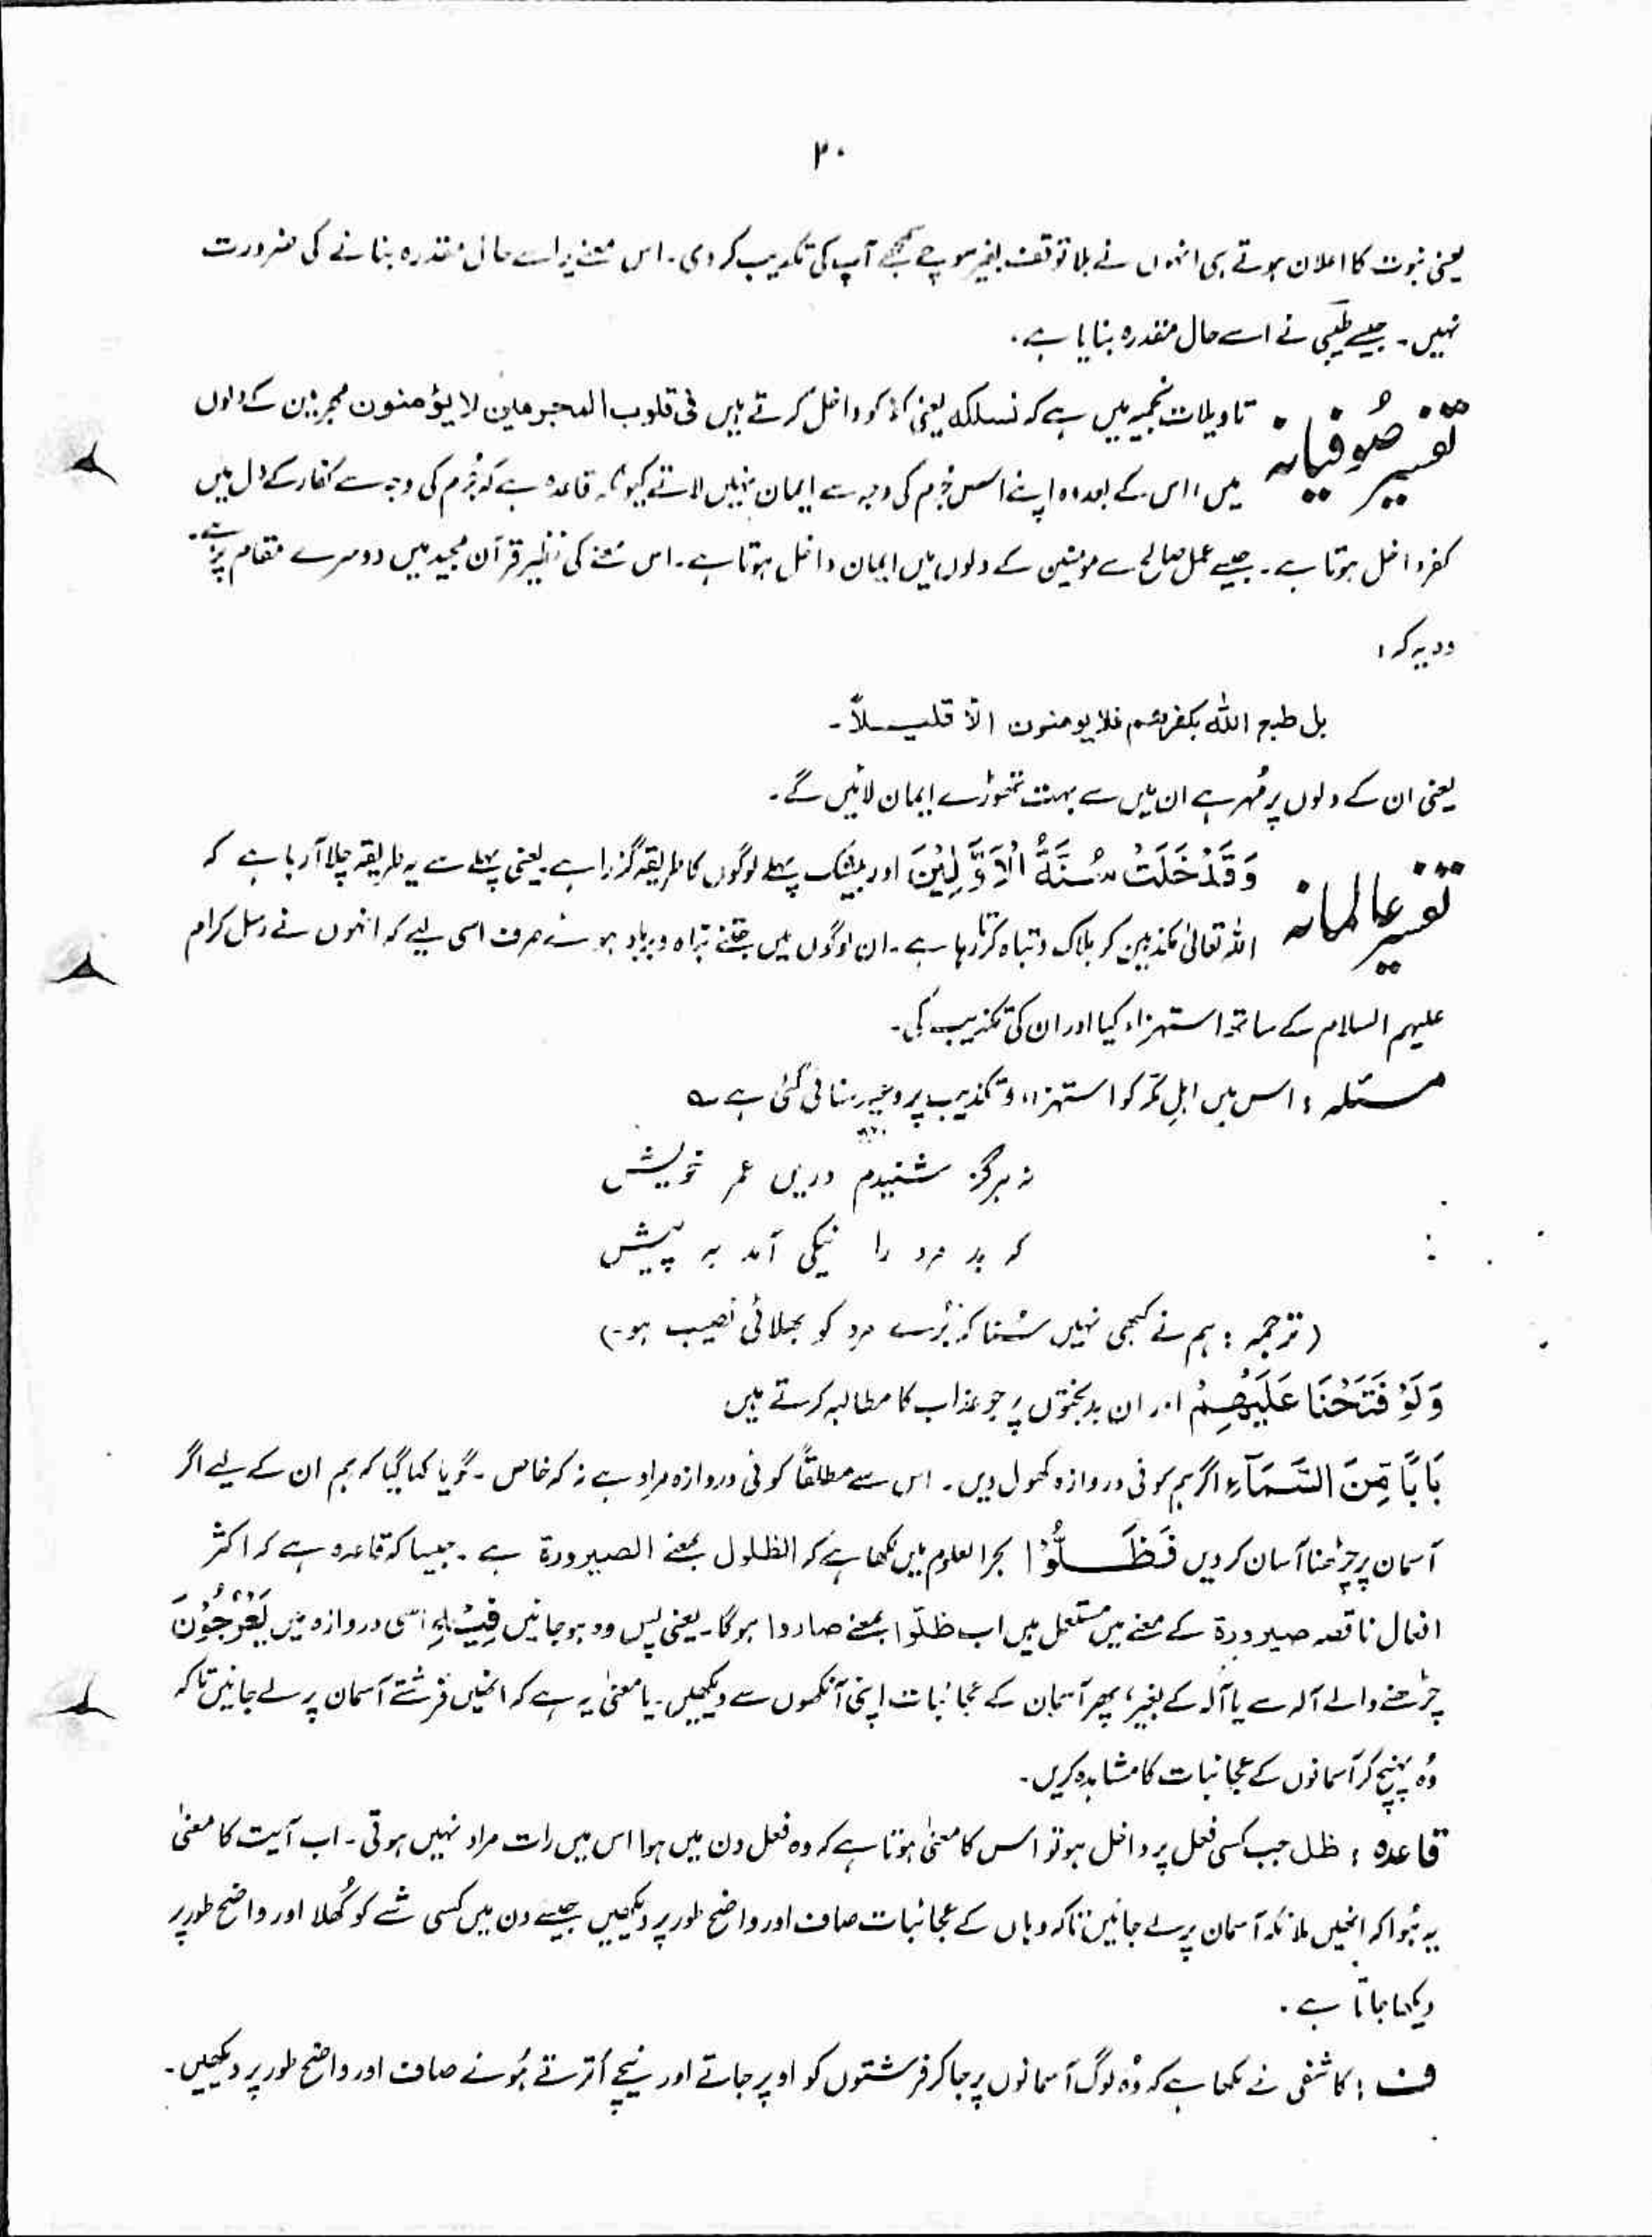 ۲۰
یعنی نبوت کا اعلان ہوتے ہی انہوں نے بلا توقف بغیر سوچے سمجھے آپ کی تکذیب کر دی۔ اس معنے پر اسے حال مقدرہ بنانے کی ضرورت
نہیں۔ جیسے طیبی نے اسے حال مقدرہ بنایا ہے۔
تفسیر صُوفیانہ تاویلات نجمیہ میں ہے کہ نسلکہ یعنی کفر کو داخل کرتے ہیں فی قلوب المجرمین لا یؤمنون مجرمین کے دلوں
میں، اس کے بعد وہ اپنے اس جُرم کی وجہ سے ایمان نہیں لاتے کیونکہ قاعدہ ہے کہ جُرم کی وجہ سے کفار کے دل میں
کفر داخل ہوتا ہے۔ جیسے عمل صالح سے مومنین کے دلوں میں ایمان داخل ہوتا ہے۔ اس معنے کی نظیر قرآن مجید میں دوسرے مقام پر ہے۔
وہ یہ کہ :
بل طبع اللہ بکفرھم فلا یومنون الّا قلیلاً۔
یعنی ان کے دلوں پر مُہر ہے ان میں سے بہت تھوڑے ایمان لائیں گے۔
تفسیر عالمانہ وَقَدْ خَلَتْ سُنَّةُ الْاَوَّلِيْنَ اور بیشک پہلے لوگوں کا طریقہ گزرا ہے یعنی پہلے سے یہ طریقہ چلا آ رہا ہے کہ
اللہ تعالیٰ مکذبین کو ہلاک و تباہ کرتا رہا ہے۔ ان لوگوں میں جتنے تباہ و برباد ہوئے صرف اسی لیے کہ انہوں نے رسل کرام
علیہم السلام کے ساتھ استہزاء کیا اور ان کی تکذیب کی۔
مسئلہ : اس میں اہلِ مکّہ کو استہزاء و تکذیب پر وعید سنائی گئی ہے ؎
نہ ہرگز شنیدم دریں عمر خویش
کہ بد مرد را نیکی آمد بہ پیش
(ترجمہ : ہم نے کبھی نہیں سُنا کہ بُرے مرد کو بھلائی نصیب ہو۔)
وَلَوْ فَتَحْنَا عَلَيْهِمْ اور ان بدبختوں پر جو عذاب کا مطالبہ کرتے ہیں
بَابًا مِّنَ السَّمَآءِ اگر ہم کوئی دروازہ کھول دیں۔ اس سے مطلقاً کوئی دروازہ مراد ہے نہ کہ خاص۔ گویا کہا گیا کہ ہم ان کے لیے اگر
آسمان پر چڑھنا آسان کر دیں فَظَلُّوْا بحر العلوم میں لکھا ہے کہ الظلول بمعنے الصیرورة ہے۔ جیسا کہ قاعدہ ہے کہ اکثر
افعال ناقصہ صیرورة کے معنے میں مستعمل ہیں اب ظلّوا بمعنے صاروا ہوگا۔ یعنی پس وہ ہو جائیں فِيْهِ اسی دروازہ میں يَعْرُجُوْنَ
چڑھنے والے آلہ سے یا آلہ کے بغیر، پھر آسمان کے عجائبات اپنی آنکھوں سے دیکھیں۔ یا معنیٰ یہ ہے کہ انھیں فرشتے آسمان پر لے جائیں تاکہ
وُہ پہنچ کر آسمانوں کے عجائبات کا مشاہدہ کریں۔
قاعدہ : ظل جب کسی فعل پر داخل ہو تو اس کا معنیٰ ہوتا ہے کہ وہ فعل دن میں ہوا اس میں رات مراد نہیں ہوتی۔ اب آیت کا معنیٰ
یہ ہُوا کہ انھیں ملائکہ آسمان پر لے جائیں تاکہ وہاں کے عجائبات صاف اور واضح طور پر دیکھیں جیسے دن میں کسی شے کو کُھلا اور واضح طور پر
دیکھا جاتا ہے۔
ف : کاشفی نے لکھا ہے کہ وُہ لوگ آسمانوں پر جا کر فرشتوں کو اوپر جاتے اور نیچے اُترتے ہُوئے صاف اور واضح طور پر دیکھیں۔